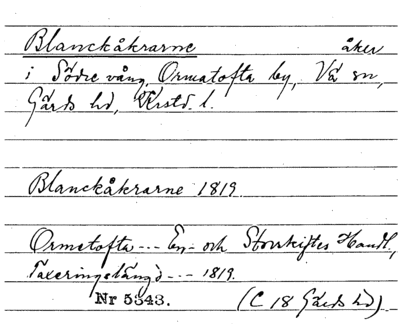 Blanckåkrarne åker
i Södre vång, Ormatofta by, Vä sn,
Gärds hd, Krstd. l.
Blanckåkrarne 1819
Ormatofta --- En- och Storskiftes Handl.,
Taxeringslängd --- 1819.
Nr 5343. (C 18 Gärds hd)